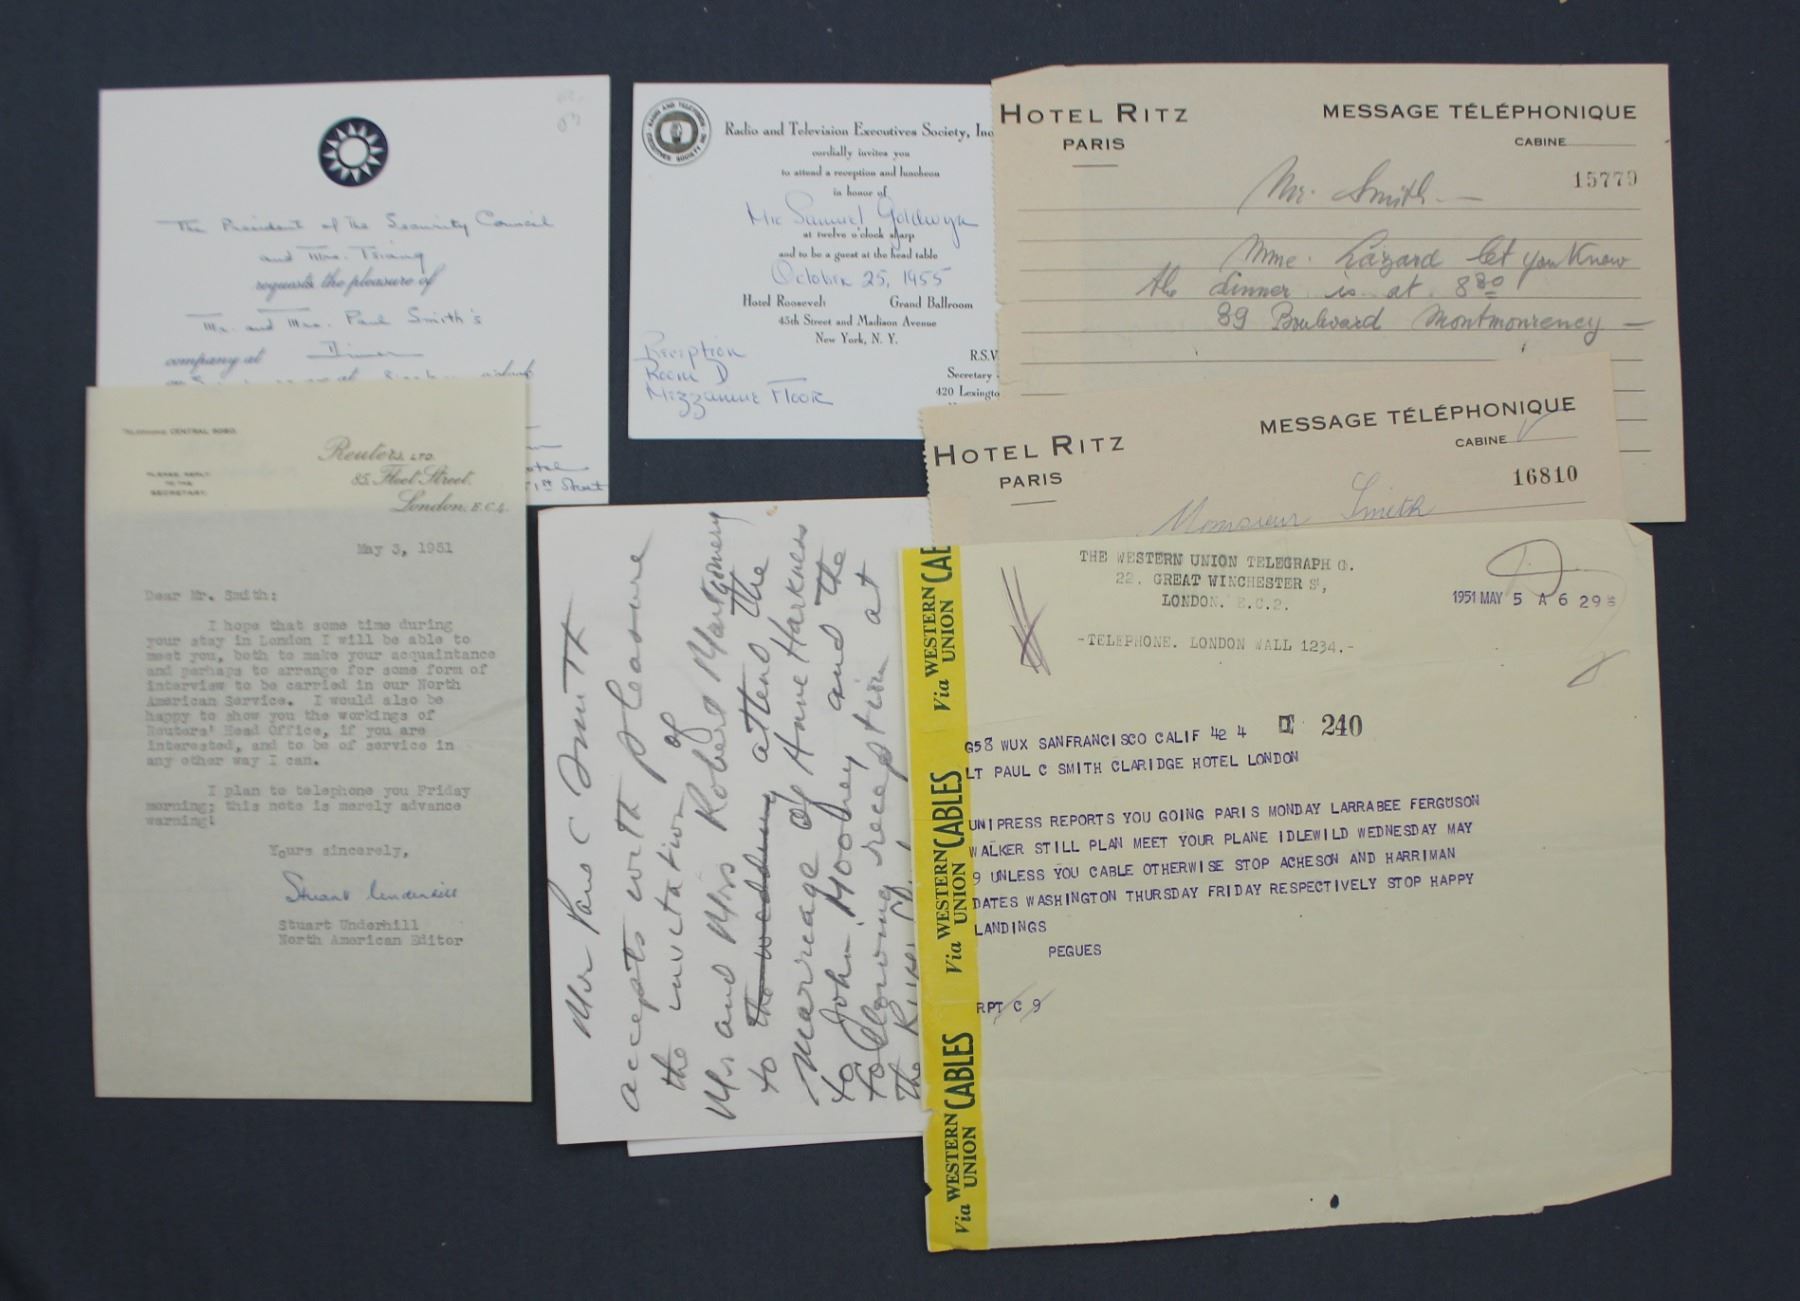 The President of The Security Council
and Mrs. Tsiang
requests the pleasure of
Mr. and Mrs. Paul Smith's
company at Dinner
51st Street
RADIO AND TELEVISION EXECUTIVES SOCIETY INC
Radio and Television Executives Society, Inc
cordially invites you
to attend a reception and luncheon
in honor of
Mr. Samuel Goldwyn
at twelve o'clock sharp
and to be a guest at the head table
October 25, 1955
Hotel Roosevelt Grand Ballroom
45th Street and Madison Avenue
New York, N. Y.
Reception
Room D
Mezzanine Floor
R.S.V
Secretary
420 Lexingto
HOTEL RITZ
PARIS
MESSAGE TÉLÉPHONIQUE
CABINE
15779
Mr. Smith. —
Mme. Lazard let you know
the dinner is at 8 30
89 Boulvard Montmorency —
HOTEL RITZ
PARIS
MESSAGE TÉLÉPHONIQUE
CABINE
16810
Monsieur Smith
TELEPHONE CENTRAL
PLEASE REPLY
TO THE
SECRETARY.
Reuters, LTD.
85, Fleet Street,
London, E.C.4.
May 3, 1951
Dear Mr. Smith:
I hope that some time during
your stay in London I will be able to
meet you, both to make your acquaintance
and perhaps to arrange for some form of
interview to be carried in our North
American Service. I would also be
happy to show you the workings of
Reuters' Head Office, if you are
interested, and to be of service in
any other way I can.
I plan to telephone you Friday
morning; this note is merely advance
warning!
Yours sincerely,
Stuart Underhill
Stuart Underhill
North American Editor
Mr Paul C Smith
accepts with pleasure
the invitation of
Mr and Mrs Robert Montgomery
to the wedding attend the
Marreage of Anne Harkness
to John Mooney and the
following reception at
the
Via WESTERN UNION CABLES
Via WESTERN UNION CABLES
Via WESTERN UNION CAB
THE WESTERN UNION TELEGRAPH Co.
22, GREAT WINCHESTER St,
LONDON. E.C.2.
1951 MAY 5 A 6 29
-TELEPHONE. LONDON WALL 1234.-
240
G58 WUX SANFRANCISCO CALIF 42 4
LT PAUL C SMITH CLARIDGE HOTEL LONDON
UNIPRESS REPORTS YOU GOING PARIS MONDAY LARRABEE FERGUSON
WALKER STILL PLAN MEET YOUR PLANE IDLEWILD WEDNESDAY MAY
9 UNLESS YOU CABLE OTHERWISE STOP ACHESON AND HARRIMAN
DATES WASHINGTON THURSDAY FRIDAY RESPECTIVELY STOP HAPPY
LANDINGS
PEGUES
RPT C 9